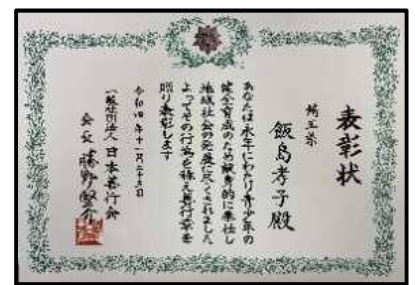 表彰状
埼玉県
飯島孝子殿
あなたは永年にわたり青少年の
健全育成のため献身的に奉仕し
地域社会の発展に尽くされました
よってその行為を称え善行章を
贈り表彰します
令和四年十一月二十六日
一般社団法人 日本善行会
会長 勝野堅介